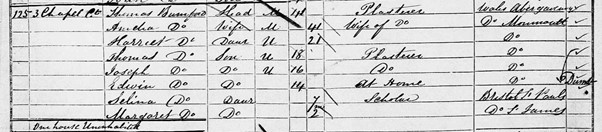 125 3 Chapel Thomas Bumford Head M 44 Plasterer Wales Abergaveny
Amelia Do Wife M 41 Wife of Do Do Monmouth
Harriet Do Daur U 21 Do
Thomas Do Son U 18 Plasterer Do
Joseph Do Do U 16 (Do Do
Edwin Do Do 14 At Home Do
Selina Do Daur 7 Scholar Bristol St Pauls
Margaret Do Do Do St James
One house Uninhabited